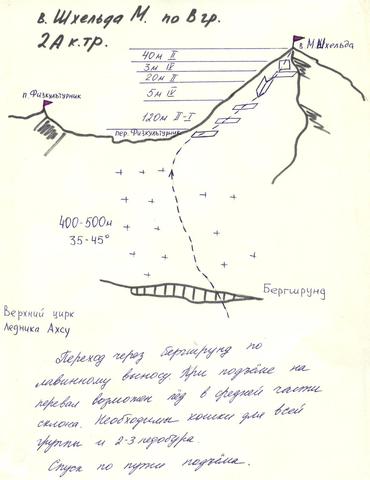 в. Шхельда М. по В гр.
2А к.тр.
40м II
3м IV
20м II
5м IV
120м II-I
в. М.Шхельда
п. Физкультурник
пер. Физкультурник
400-500м
35-45°
Бергшрунд
Верхний цирк
Ледника Ахсу
Переход через бергшрунд по
лавинному выносу. При подъёме на
перевал возможен лёд в средней части
склона. Необходимы кошки для всей
группы и 2-3 ледобура.
Спуск по пути подъёма.